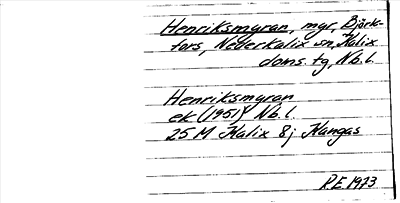 Henriksmyran, mgr, Björk-
fors, Nederkalix sn, Kalix
doms. tg, Nb. l.
Henriksmyran
ek (1951) Nb. l.
25 M Kalix 8j Kangas
R.E 1973